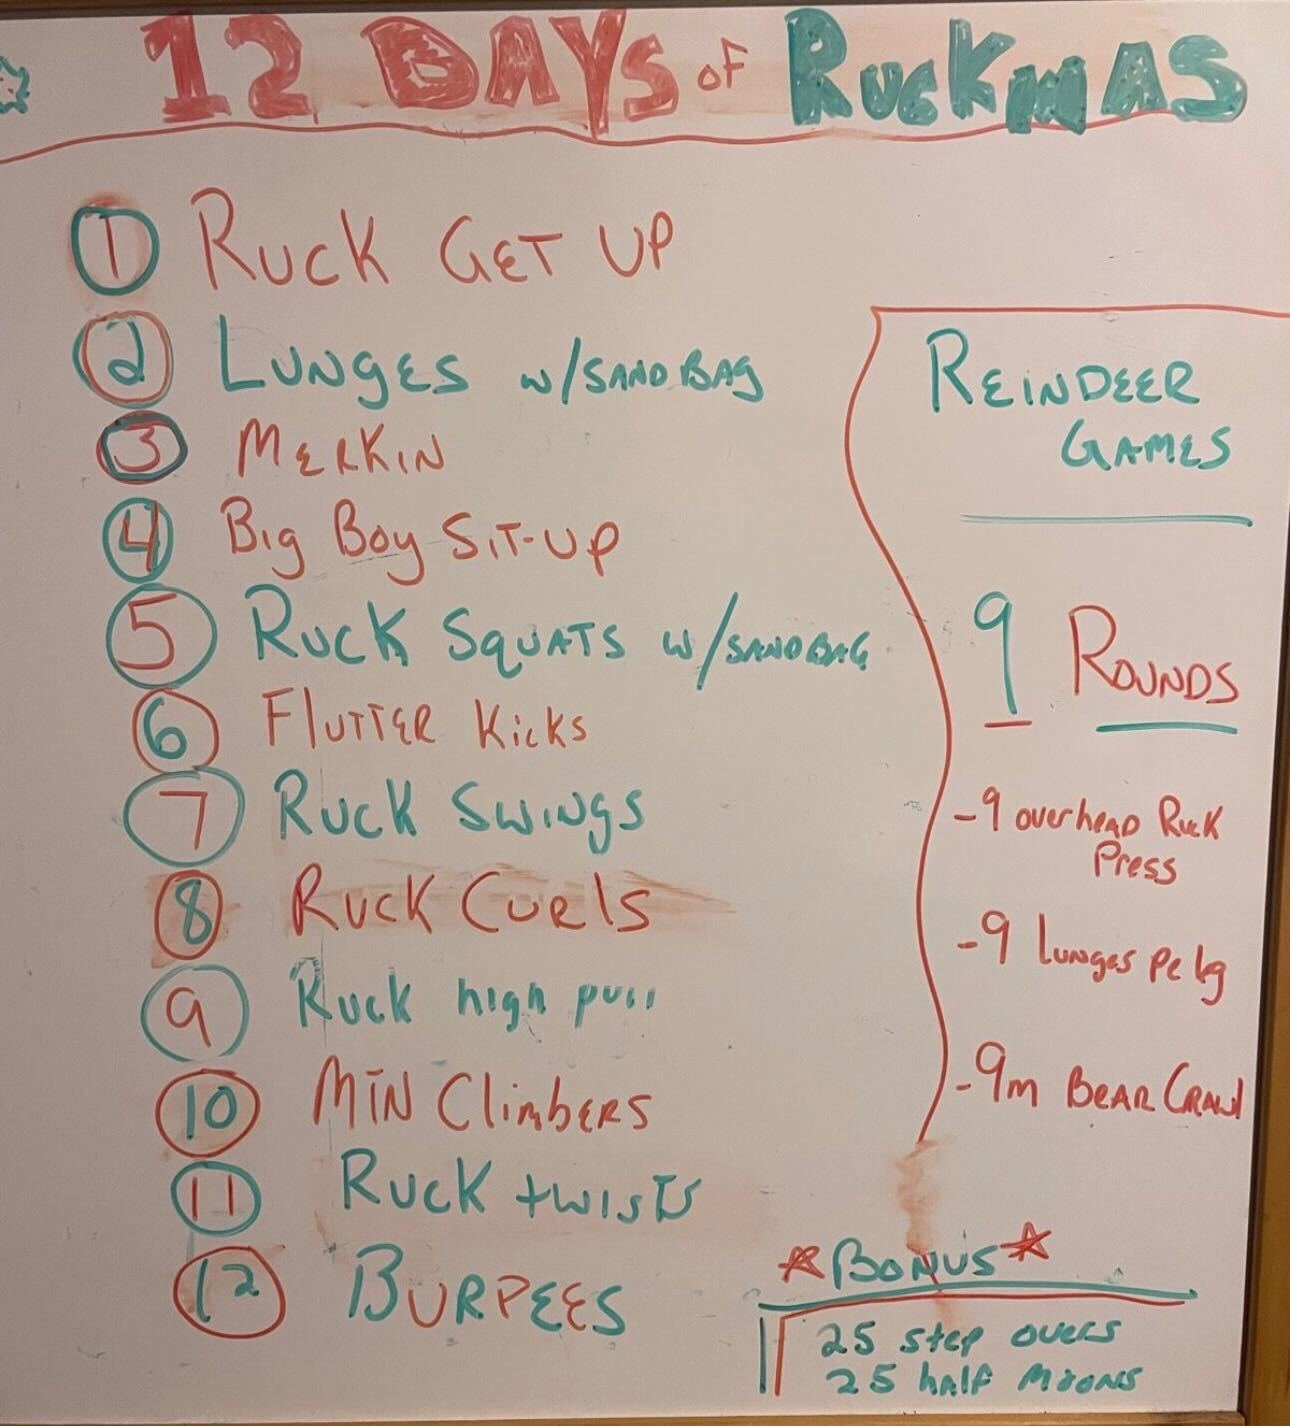 12 DAYS of RUCKMAS
1 RUCK GET UP
2 LUNGES w/SANDBAG
3 MERKIN
4 Big Boy SIT-UP
5 RUCK SQUATS w/SANDBAG
6 FLUTTER KICKS
7 RUCK SWINGS
8 RUCK CURLS
9 RUCK high pull
10 MTN Climbers
11 RUCK twists
12 BURPEES
REINDEER
GAMES
9 ROUNDS
-9 overhead Ruck
Press
-9 Lunges Pe leg
-9m BEAR CRAWl
BONUS
25 step overs
25 half moons